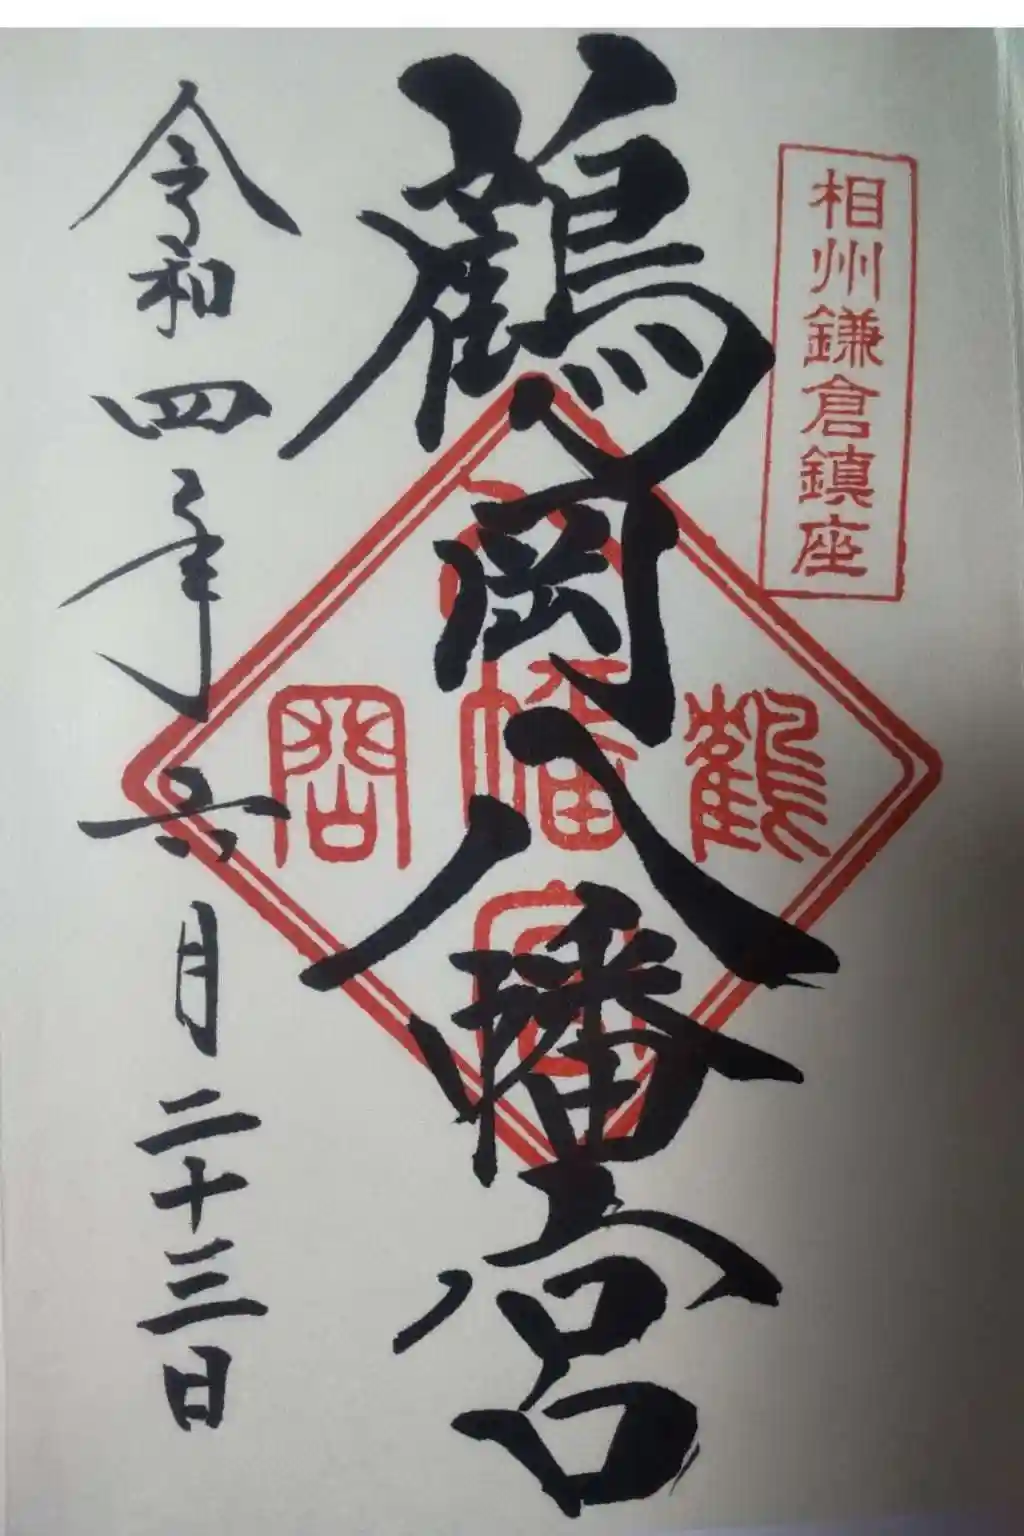 相州鎌倉鎮座
鶴岡八幡宮
令和四年六月二十三日
八
鶴
幡
岡
宮